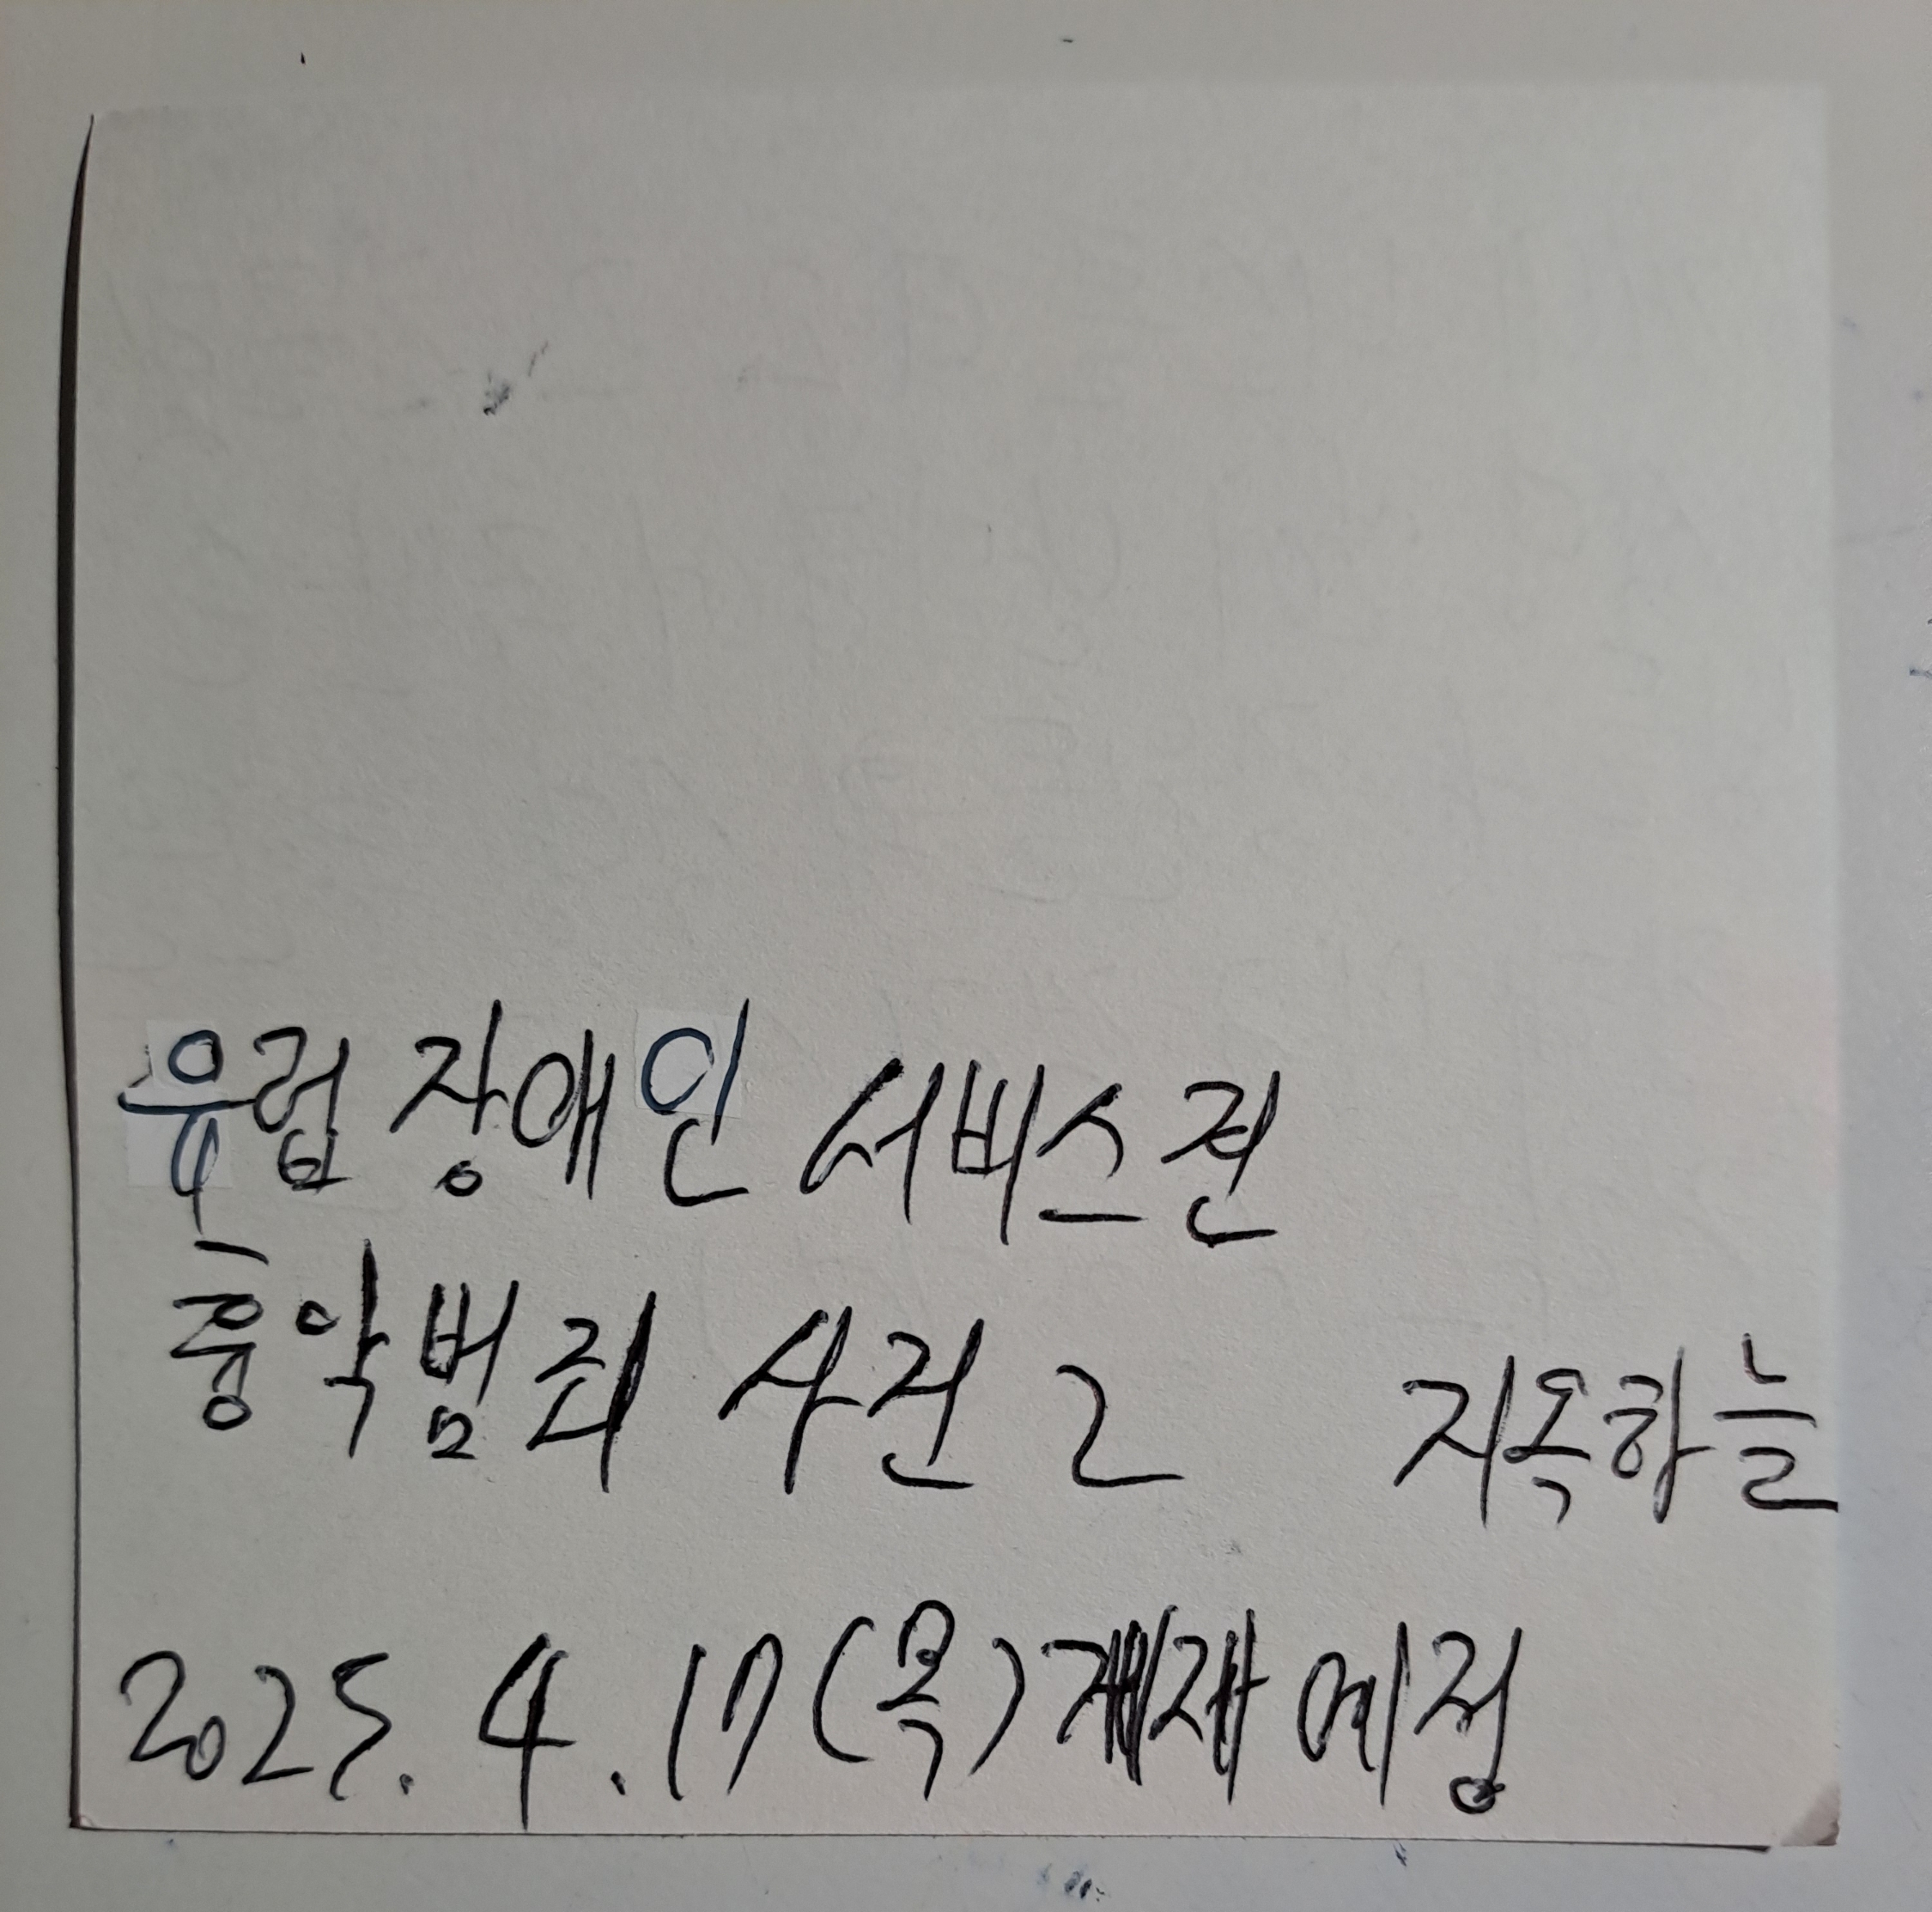 유럽 장애인 서비스권
흉악범죄 사건 2 지옥하늘
2025. 4. 17(목) 게재 예정